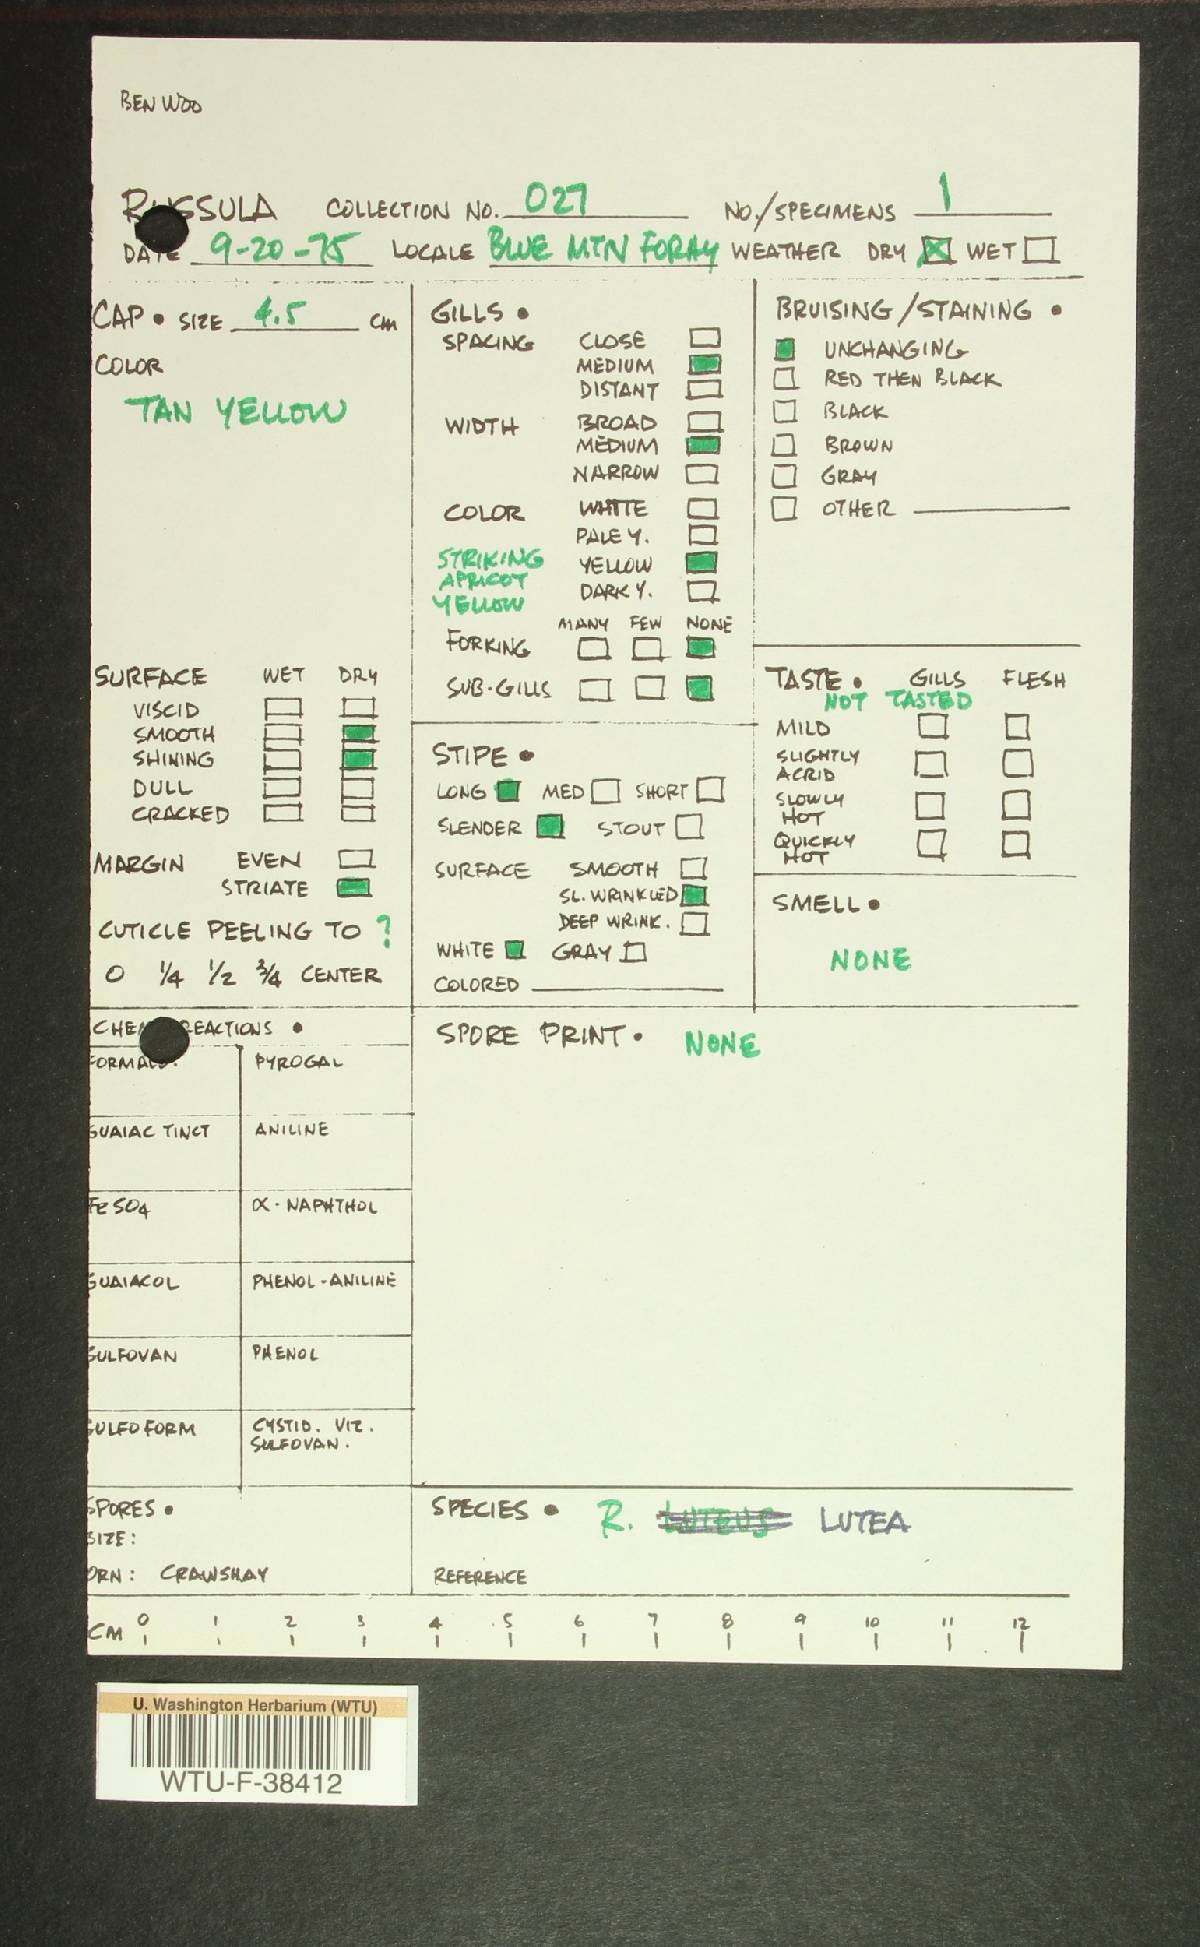 BEN WOO
RUSSULA COLLECTION NO. 027 NO./SPECIMENS 1
DATE 9-20-75 LOCALE BLUE MTN FORAY WEATHER DRY WET
CAP • SIZE 4.5 cm
COLOR
TAN YELLOW
SURFACE WET DRY
VISCID
SMOOTH
SHINING
DULL
CRACKED
MARGIN EVEN
STRIATE
CUTICLE PEELING TO ?
0 1/4 1/2 3/4 CENTER
GILLS •
SPACING CLOSE
MEDIUM
DISTANT
WIDTH BROAD
MEDIUM
NARROW
COLOR WHITE
PALE Y.
STRIKING YELLOW
APRICOT DARK Y.
YELLOW
MANY FEW NONE
FORKING
SUB-GILLS
STIPE •
LONG MED SHORT
SLENDER STOUT
SURFACE SMOOTH
SL. WRINKLED
DEEP WRINK.
WHITE GRAY
COLORED
BRUISING/STAINING •
UNCHANGING
RED THEN BLACK
BLACK
BROWN
GRAY
OTHER
TASTE • GILLS FLESH
NOT TASTED
MILD
SLIGHTLY
ACRID
SLOWLY
HOT
QUICKLY
HOT
SMELL •
NONE
CHEM REACTIONS •
FORMAL. PYROGAL
GUAIAC TINCT ANILINE
FE SO4 α-NAPHTHOL
GUAIACOL PHENOL-ANILINE
SULFOVAN PHENOL
SULFO FORM CYSTID. VIZ.
SULFOVAN.
SPORE PRINT • NONE
SPORES •
SIZE:
ORN: CRAWSHAY
SPECIES • R. LUTEUS LUTEA
REFERENCE
CM 0 1 2 3 4 5 6 7 8 9 10 11 12
U. Washington Herbarium (WTU)
WTU-F-38412